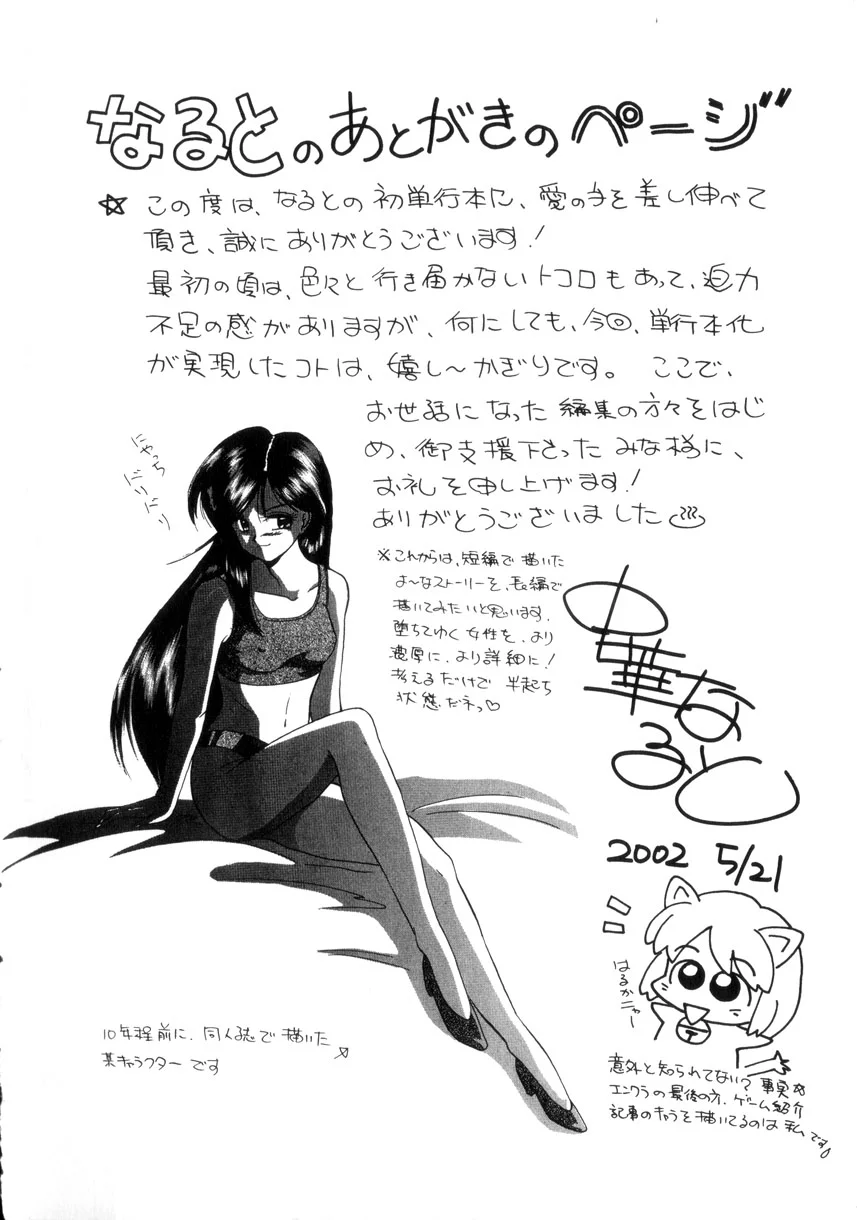 なるとのあとがきのページ
☆ この度は、なるとの初単行本に、愛の手を差し伸べて
頂き、誠にありがとうございます!
最初の頃は、色々と行き届かないトコロもあって、迫力
不足の感がありますが、何にしても、今回、単行本化
が実現したコトは、嬉し〜かぎりです。 ここで、
お世話になった編集の方々をはじ
め、御支援下さったみな様に、
お礼を申し上げます!
ありがとうございました
にゃっち
どりどり
※これからは、短編で描いた
よ〜なストーリーを、長編で
描いてみたいと思います。
堕ちてゆく女性を、より
濃厚に、より詳細に!
考えるだけで 半起ち
状態だネっ♡
華なると
2002 5/21
はるかニャー
10年程前に、同人誌で描いた
某キャラクターです
意外と知られてない? 事実☆
エンクラの最後の方、ゲーム紹介
記事のキャラを描いてるのは私です。